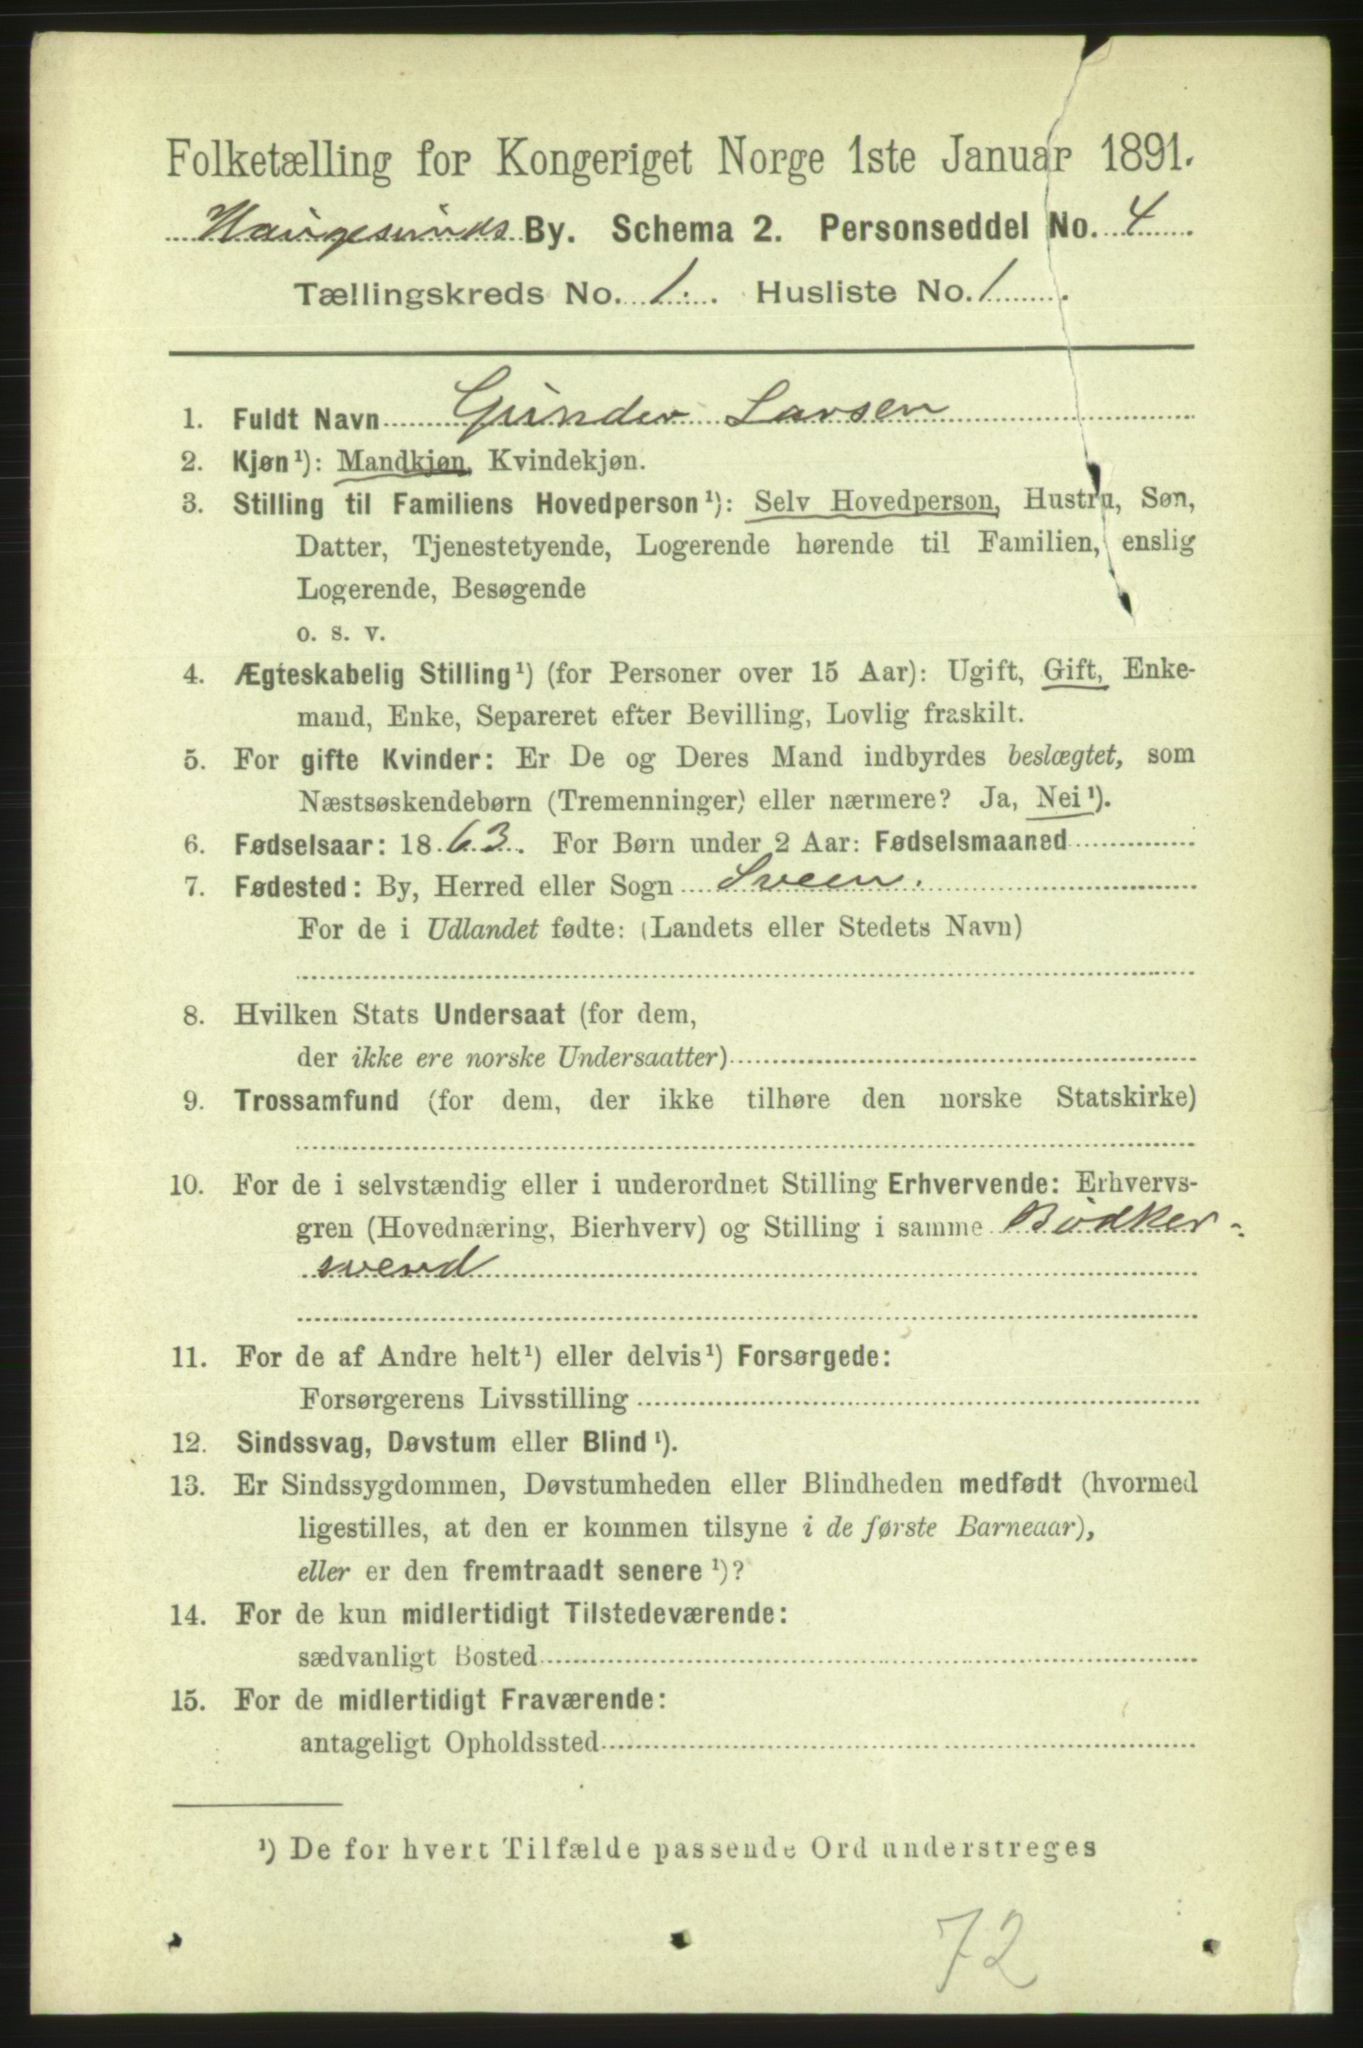 Folketælling for Kongeriget Norge 1ste Januar 1891.
Haugesunds By. Schema 2. Personseddel No. 4
Tællingskreds No. 1. Husliste No. 1
1. Fuldt Navn Gunder Larsen
2. Kjøn¹): Mandkjøn, Kvindekjøn.
3. Stilling til Familiens Hovedperson¹): Selv Hovedperson, Hustru, Søn,
Datter, Tjenestetyende, Logerende hørende til Familien, enslig
Logerende, Besøgende
o. s. v.
4. Ægteskabelig Stilling¹) (for Personer over 15 Aar): Ugift, Gift, Enke-
mand, Enke, Separeret efter Bevilling, Lovlig fraskilt.
5. For gifte Kvinder: Er De og Deres Mand indbyrdes beslægtet, som
Næstsøskendebørn (Tremenninger) eller nærmere? Ja, Nei¹).
6. Fødselsaar: 1863. For Børn under 2 Aar: Fødselsmaaned
7. Fødested: By, Herred eller Sogn Sveen.
For de i Udlandet fødte: (Landets eller Stedets Navn)
8. Hvilken Stats Undersaat (for dem,
der ikke ere norske Undersaatter)
9. Trossamfund (for dem, der ikke tilhøre den norske Statskirke)
10. For de i selvstændig eller i underordnet Stilling Erhvervende: Erhvervs-
gren (Hovednæring, Bierhverv) og Stilling i samme Bødker-
svend
11. For de af Andre helt¹) eller delvis¹) Forsørgede:
Forsørgerens Livsstilling
12. Sindssvag, Døvstum eller Blind¹).
13. Er Sindssygdommen, Døvstumheden eller Blindheden medfødt (hvormed
ligestilles, at den er kommen tilsyne i de første Barneaar),
eller er den fremtraadt senere¹)?
14. For de kun midlertidigt Tilstedeværende:
sædvanligt Bosted
15. For de midlertidigt Fraværende:
antageligt Opholdssted
¹) De for hvert Tilfælde passende Ord understreges
72